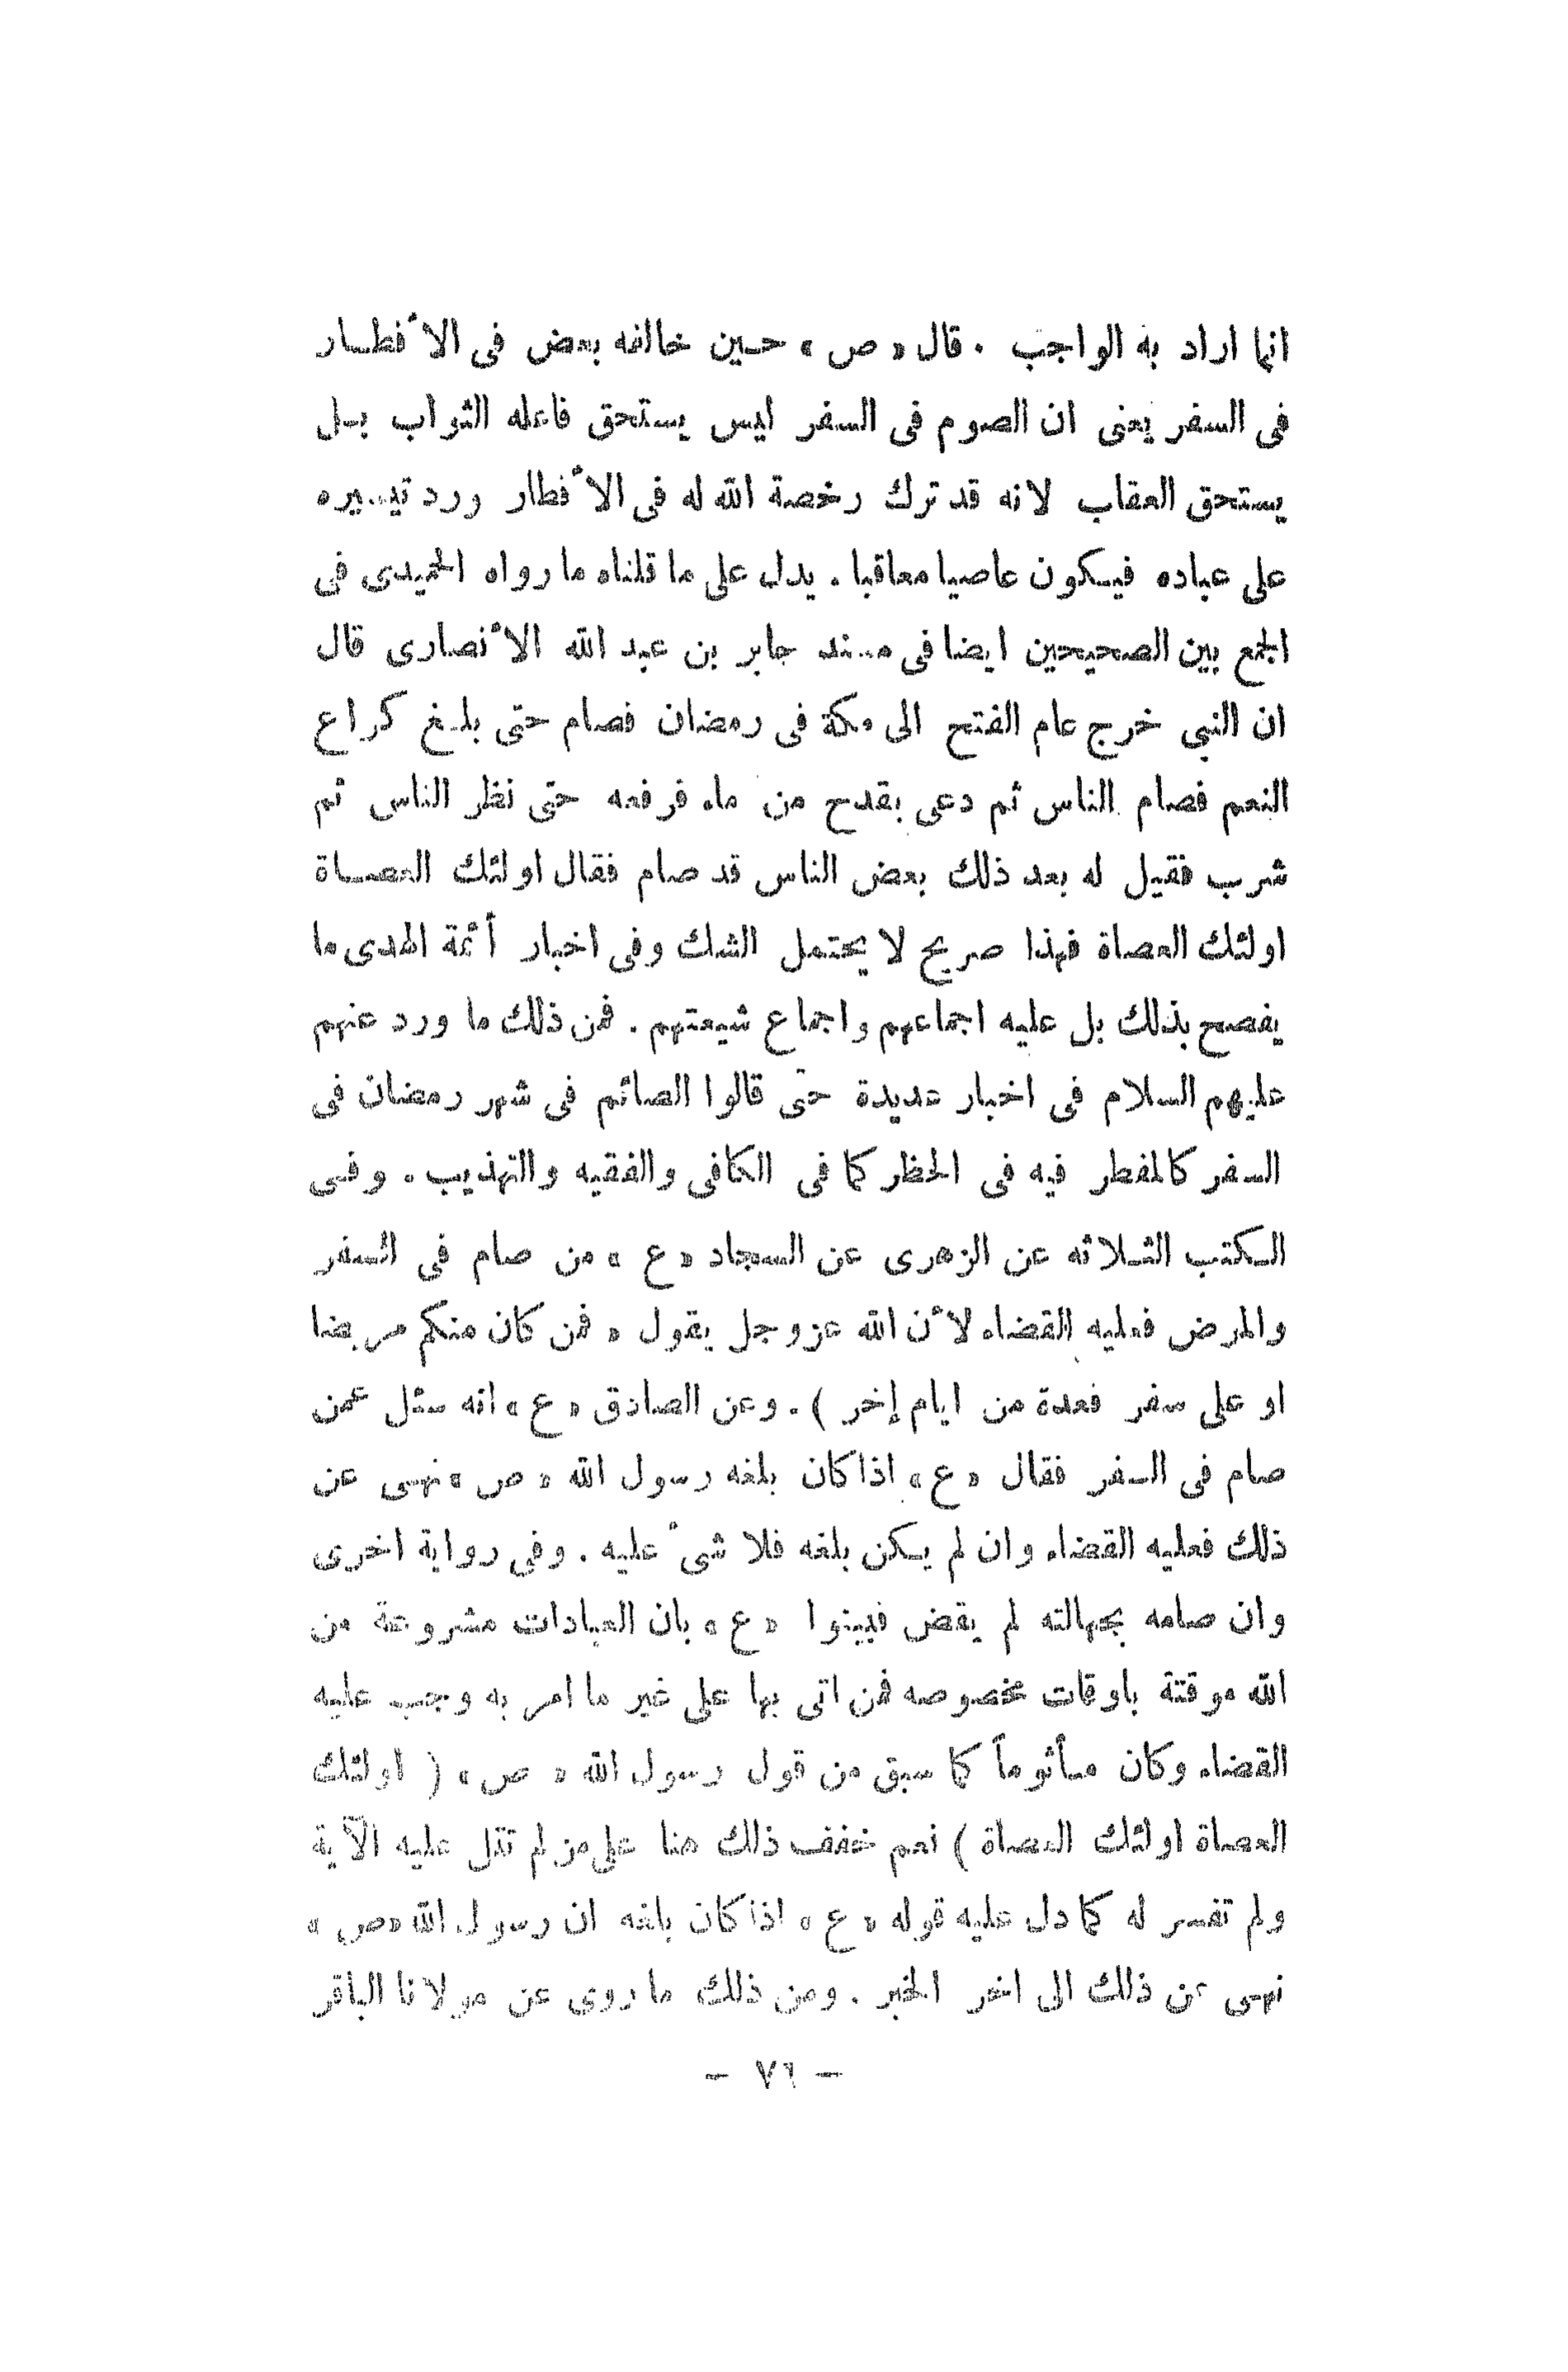 انما اراد به الواجب . قال « ص » حسين خالفه بعض فى الأفطار
فى السفر يعنى ان الصوم فى السفر ليس يستحق فاعله الثواب بل
يستحق العقاب لانه قد ترك رخصة الله له فى الأفطار ورد تيسيره
على عباده فيكون عاصيا معاقبا . يدل على ما قلناه ما رواه الحميدى فى
الجمع بين الصحيحين ايضا فى مسند جابر بن عبد الله الأنصارى قال
ان النبي خرج عام الفتح الى مكة فى رمضان فصام حتى بلغ كراع
النعم فصام الناس ثم دعى بقدح من ماء فرفعه حتى نظر الناس ثم
شرب فقيل له بعد ذلك بعض الناس قد صام فقال اولئك العصاة
اولئك العصاة فهذا صريح لا يحتمل الشك وفى اخبار أئمة الهدى ما
يفصح بذلك بل عليه اجماعهم واجماع شيعتهم . فمن ذلك ما ورد عنهم
عليهم السلام فى اخبار عديدة حتى قالوا الصائم فى شهر رمضان فى
السفر كالمفطر فيه فى الحظر كما فى الكافى والفقيه والتهذيب . وفى
الكتب الثلاثه عن الزهرى عن السجاد « ع » من صام فى السفر
والمرض فعليه القضاء لأن الله عزوجل يقول « فمن كان منكم مريضا
او على سفر فعدة من ايام إخر ) . وعن الصادق « ع » انه سئل عمن
صام فى السفر فقال « ع » اذا كان بلغه رسول الله « ص » نهى عن
ذلك فعليه القضاء وان لم يكن بلغه فلا شىء عليه . وفى رواية اخرى
وان صامه بجهالته لم يقض فبينوا « ع » بان العبادات مشروعة من
الله موقتة باوقات مخصوصه فمن اتى بها على غير ما امر به وجب عليه
القضاء وكان مأثوماً كما سبق من قول رسول الله « ص » ( اولئك
العصاة اولئك العصاة ) نعم خفف ذلك هنا على من لم تتل عليه الآية
ولم تفسر له كما دل عليه قوله « ع » اذا كان بلغه ان رسول الله «ص »
نهى عن ذلك الى اخر الخبر . ومن ذلك ما روى عن مولانا الباقر
– ٧٦ –